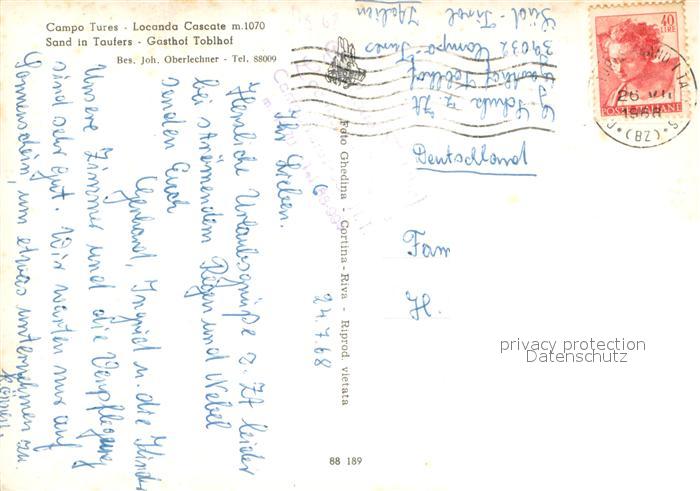 Campo Tures - Locanda Cascate m.1070
Sand in Taufers - Gasthof Toblhof
Bes. Joh. Oberlechner - Tel. 88009
24.7.68
Ihr Lieben.
Herzliche Urlaubsgrüße z. Zt leider
bei strömendem Regen und Nebel
senden Euch
Gerhard, Ingrid u. die Kinder
Unsere Zimmer und die Verpflegung
sind sehr gut. Wir warten nur auf
Sonnenschein, um etwas unternehmen zu
können.
Foto Ghedina - Cortina - Riva - Riprod. vietata
z. Zt.
Gasthof Toblhof
39032 Campo-Tures
Süd-Tirol Italien
Deutschland
Fam
H.
40
LIRE
POSTE ITALIANE
26.VII
1968
(BZ)
privacy protection
Datenschutz
88 189